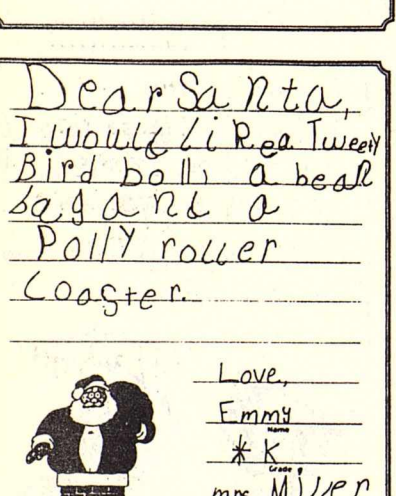 Dear Santa,
I would like a Tweety
Bird boll, a bean
bag and a
Polly roller
Coaster.
Love,
Emmy
Name
* K
Grade
mrs. Miller